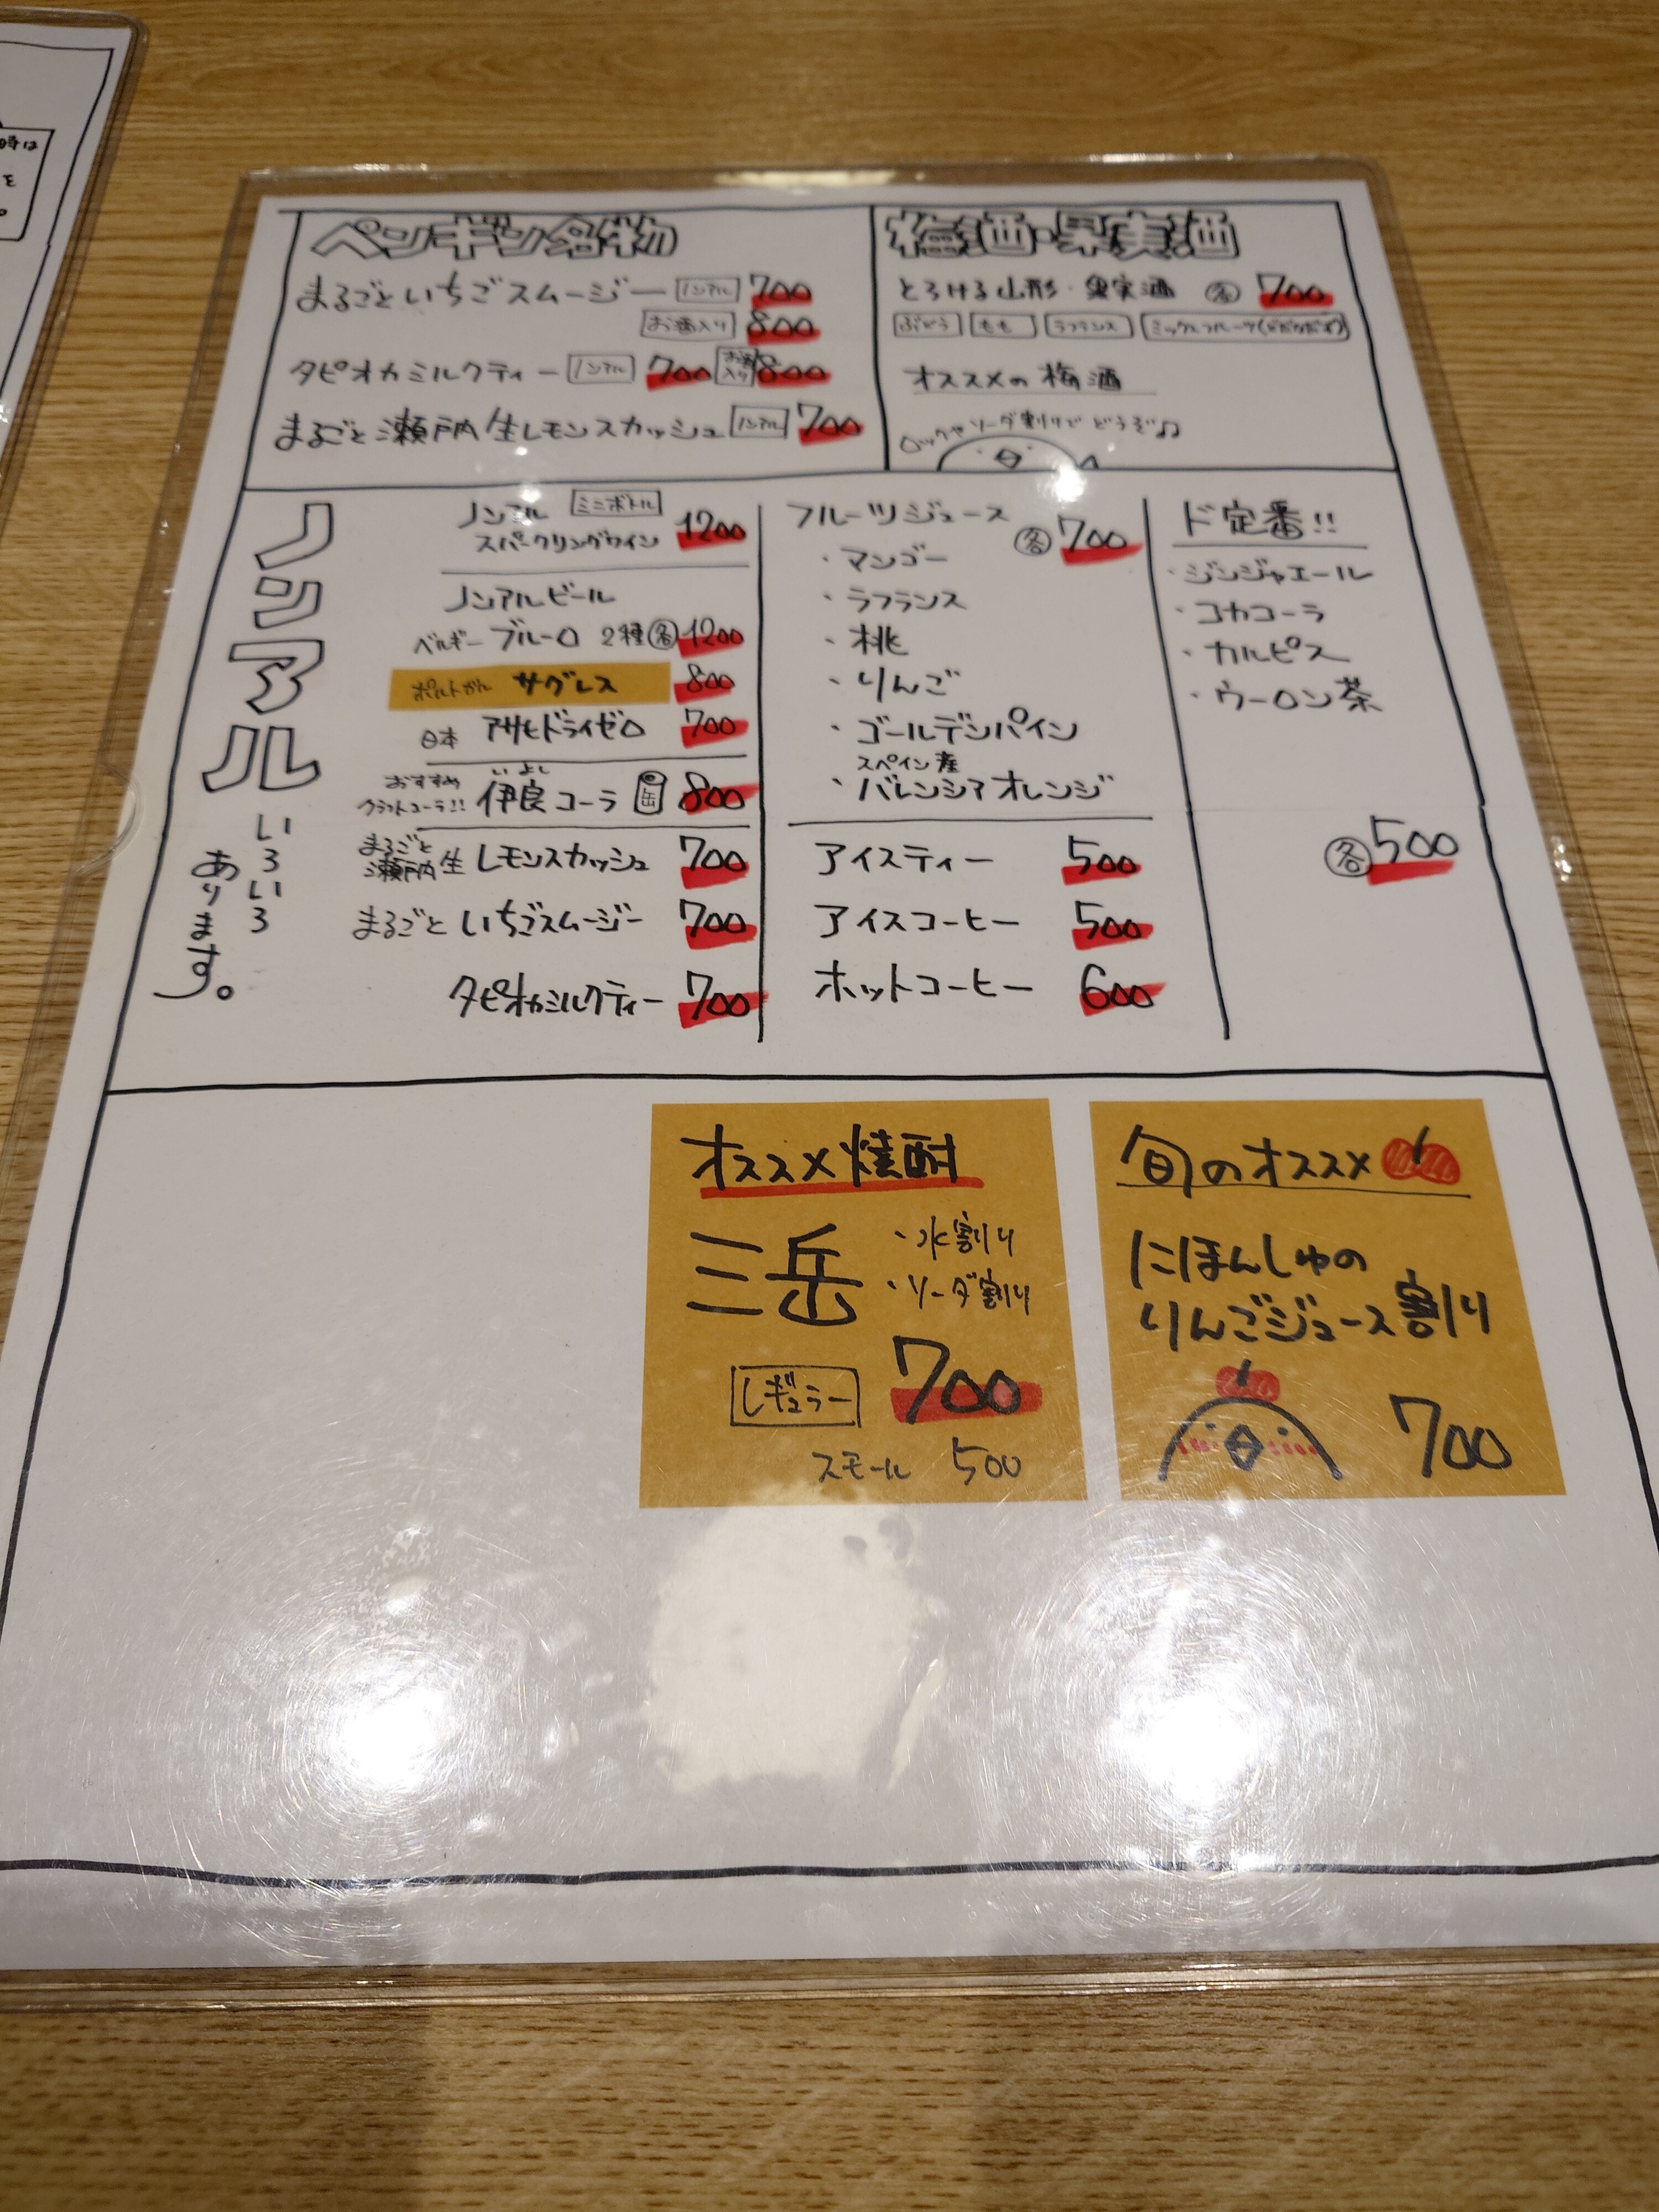 時は
を
ペンギン名物
まるごといちごスムージー ノンアル 700
お酒入り 800
タピオカミルクティー ノンアル 700 お酒入り 800
まるごと瀬戸内生レモンスカッシュ ノンアル 700
梅酒・果実酒
とろける山形・果実酒 各 700
ぶどう もも ラフランス
オススメの梅酒
ロックやソーダ割りでどうぞ♫
ノンアル
いろいろ
あります。
ノンアル ミニボトル
スパークリングワイン 1200
ノンアルビール
ベルギー ブルーロ 2種 各 1200
ポルトガル サグレス 800
日本 アサヒドライゼロ 700
おすすめ
クラフトコーラ!!
いよし
伊良コーラ 缶 800
まるごと
瀬戸内生 レモンスカッシュ 700
まるごと いちごスムージー 700
タピオカミルクティー 700
フルーツジュース 各 700
・マンゴー
・ラフランス
・桃
・りんご
・ゴールデンパイン
スペイン産
・バレンシアオレンジ
アイスティー 500
アイスコーヒー 500
ホットコーヒー 600
ド定番!!
・ジンジャエール
・コカコーラ
・カルピス
・ウーロン茶
各 500
オススメ焼酎
三岳
・水割り
・ソーダ割り
レギュラー 700
スモール 500
旬のオススメ
にほんしゅの
りんごジュース割り
700